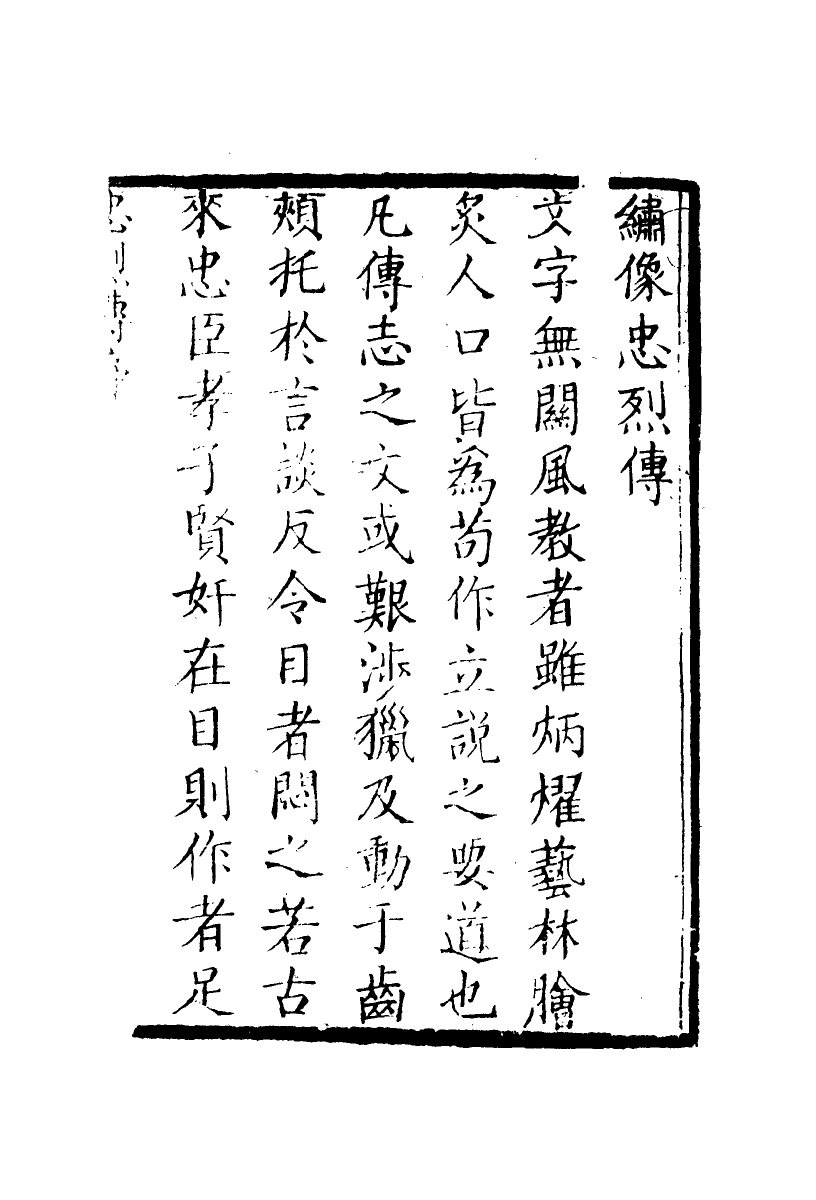 繡像忠烈傳
文字無關風教者雖炳燿藝林膾
炙人口皆爲茍作立說之要道也
凡傳志之文或艱涉獵及動于齒
頰托於言談反令目者悶之若古
來忠臣孝子賢奸在目則作者足
忠烈傳序